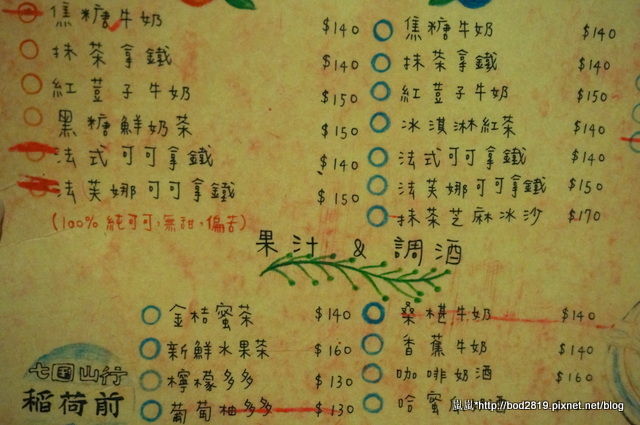 焦糖牛奶 $140
抹茶拿鐵 $140
紅荳子牛奶 $150
黑糖鮮奶茶 $150
法式可可拿鐵 $140
法芙娜可可拿鐵 $150
(100%純可可,無甜,偏苦)
焦糖牛奶 $140
抹茶拿鐵 $140
紅荳子牛奶 $150
冰淇淋紅茶 $140
法式可可拿鐵 $140
法芙娜可可拿鐵 $150
抹茶芝麻冰沙 $170
果汁 & 調酒
金桔蜜茶 $140
新鮮水果茶 $160
檸檬多多 $130
葡萄柚多多 $130
桑椹牛奶 $140
香蕉牛奶 $140
咖啡奶酒 $160
哈蜜瓜
七国山行
稻荷前
嵐嵐*http://bod2819.pixnet.net/blog